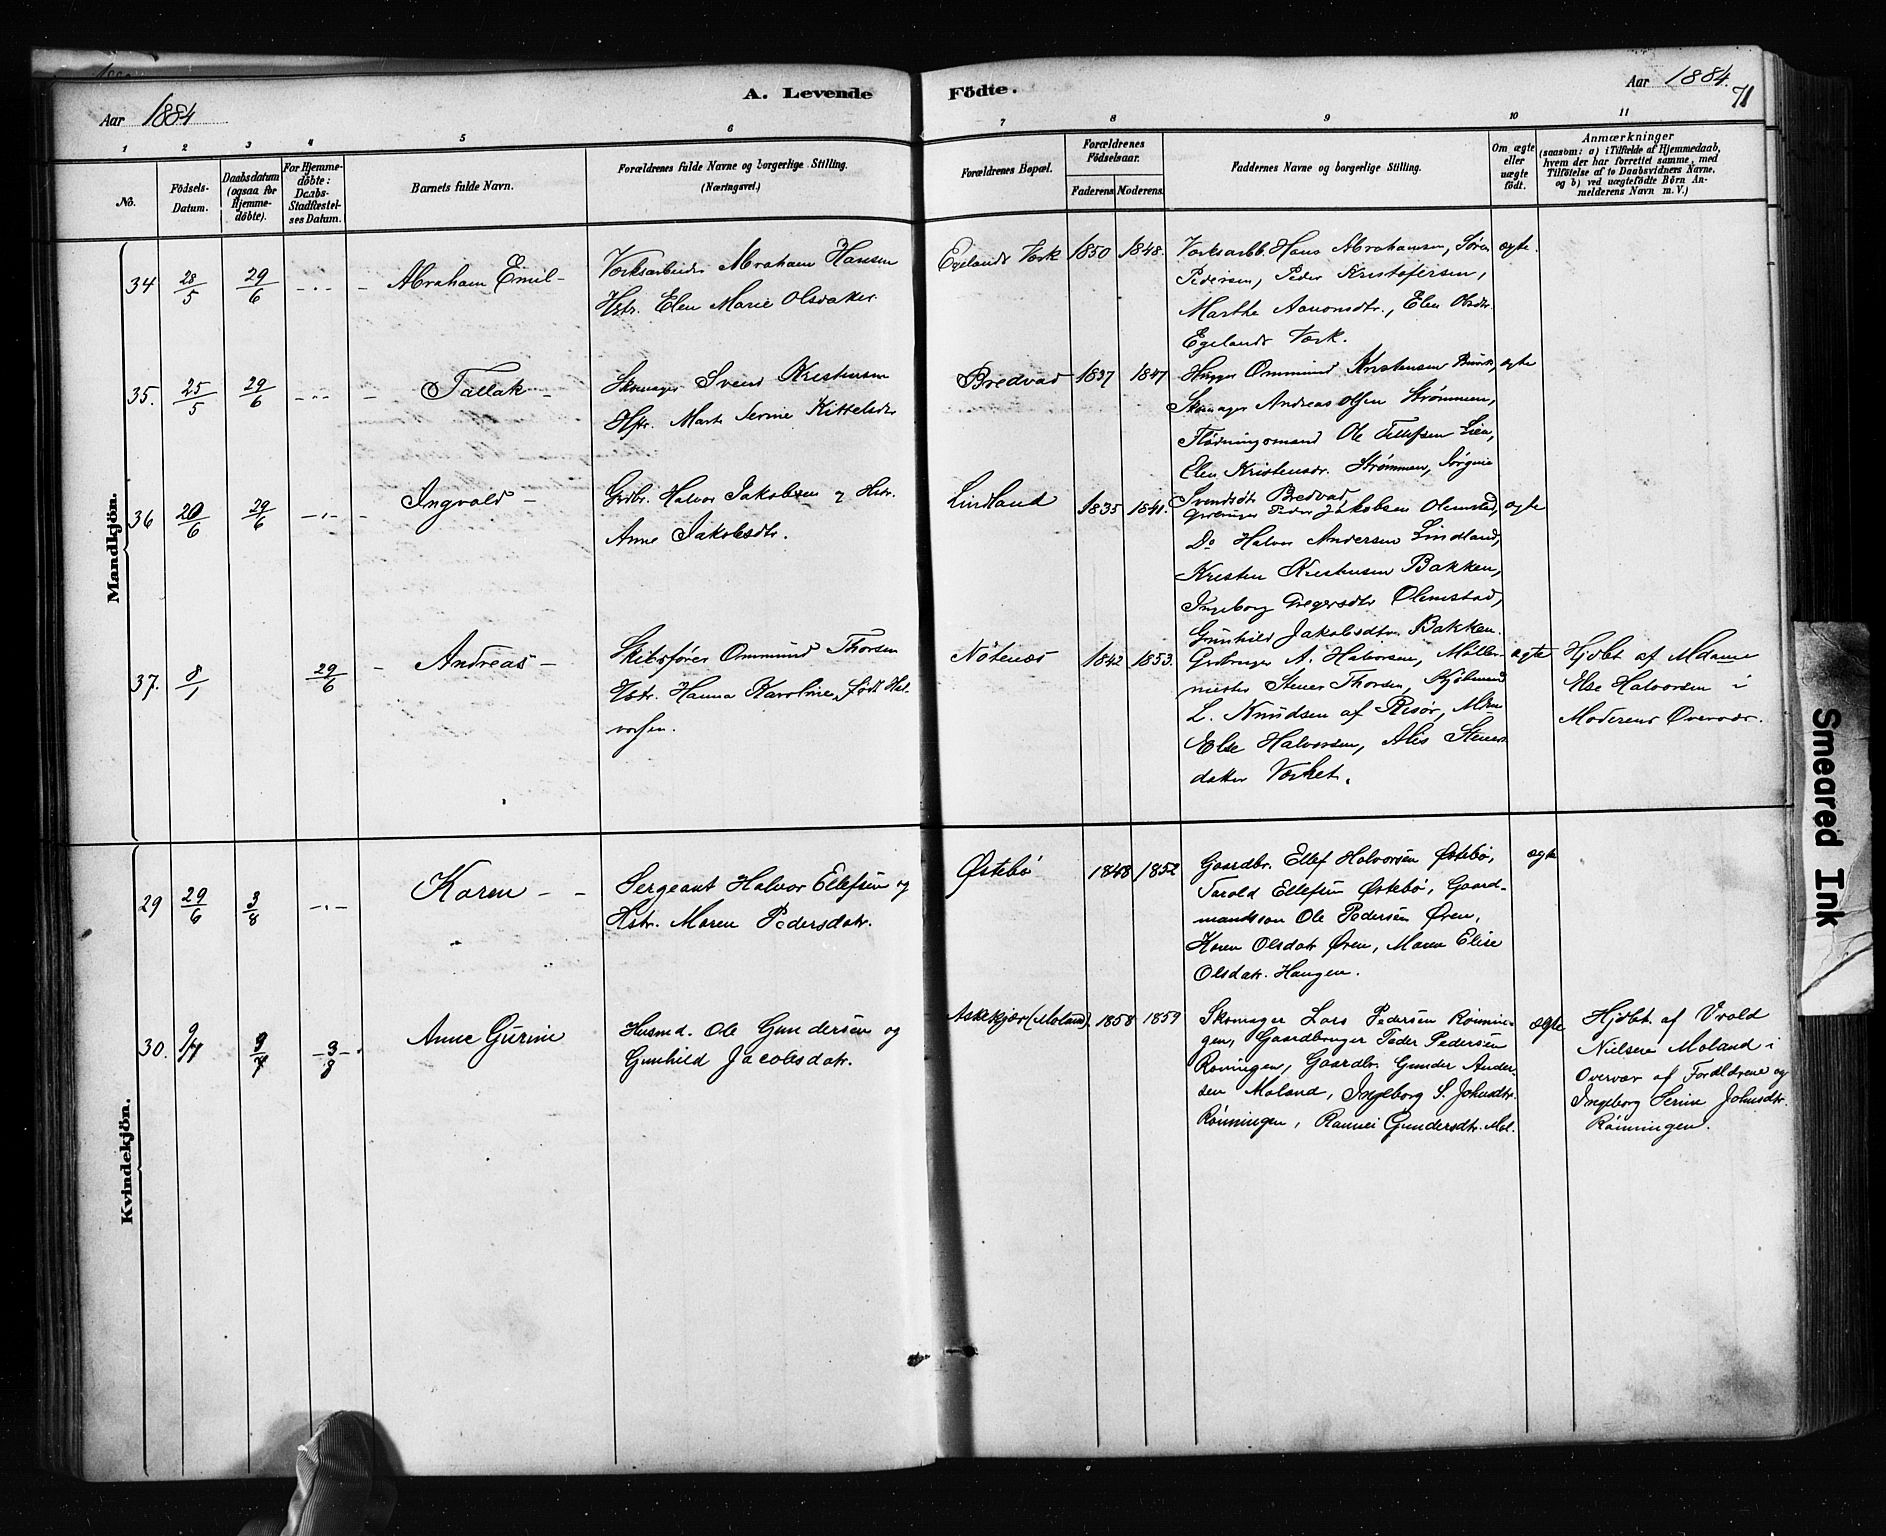 Aar 1884
A. Levende Födte.
Aar 1884.
71
1 2 3 4 5 6 7 8 9 10 11
No.
Födsels-Datum.
Daabsdatum (ogsaa for Hjemmedöbte).
For Hjemmedöbte: Daabs-Stadfæstelses Datum.
Barnets fulde Navn.
Forældrenes fulde Navne og borgerlige Stilling.
(Næringsvei.)
Forældrenes Bopæl.
Forældrenes Födselsaar.
Faderens. Moderens.
Faddernes Navne og borgerlige Stilling.
Om ægte eller uægte födt.
Anmærkninger
(saasom: a) i Tilfælde af Hjemmedaab, hvem der har forrettet samme, med Tilföielse af to Daabsvidners Navne, og b) ved uægtefödte Börn Anmelderens Navn m. V.)
Mandkjön.
34 28/5 29/6 Abraham Emil
Værksarbeider Abraham Hansen
Hstr. Elen Marie Olsdatter
Egelands Værk 1850 1848.
Værksarbb. Hans Abrahamsen, Søren
Pedersen, Peder Kristofersen,
Marthe Aanonsdtr., Elen Olsdtr.
Egelands Værk.
ægte.
35. 25/5 29/6 Tallak
Skomager Svend Kristensen
Hstr. Marte Serine Kittelsdtr
Bredvad 1837 1847
Ommund Kristensen
Skomager Andreas Olsen Strømmen,
Flødningsmand Ole Tellefsen Lien,
Elen Kristensdr. Strømmen, Jørgine
Svendsdtr. Bredvad,
ægte
36 20/6 29/6 Ingvald
Grdbr. Halvor Jakobsen & Hstr.
Anne Jakobsdtr.
Lindland 1835 1841.
Grdbruger Peder Jakobsen Olimstad,
Do Halvor Andersen Lindland,
Kristen Kristensen Bakken,
Ingeborg Gregersdtr Olimstad,
Gunhild Jakobsdtr. Bakken.
ægte
37. 8/1 29/6 Andreas
Skibsfører Ommund Thorsen
Hstr. Hanna Karoline, født Halvorsen.
Nøtenæs 1842 1853.
Grdbruger A. Halvorsen, Møllermester Stener Thorsen, Sjømand
L. Knudsen af Risør, Mdm
Else Halvorsen, Alis Stenersdatter Værket.
ægte
Hjdbt af Madame
Else Halvorsen i
Moderens Overvær.
Kvindekjön.
29 29/6 3/8 Karen
Sergeant Halvor Ellefsen og
Hstr. Maren Pedersdatr.
Østebø 1848 1852
Gaardbr. Ellef Halvorsen Østebø,
Tarald Ellefsen Østebø, Gaardmandssøn Ole Pedersen Øren,
Karen Olsdatr Øren, Maren Elise
Olsdatr. Haugen.
ægte
30. 9/7 9/7 3/8 Anne Gurine
Husmd. Ole Gundersen og
Gunhild Jacobsdatr.
Askekjær (Moland) 1858 1859
Skomager Lars Pedersen Rønningen, Gaardbruger Peder Pedersen
Rønningen, Gaardbr. Gunder Andersen Moland, Ingeborg S. Johnsdtr.
Rønningen, Rannei Gundersdtr. Mol.
ægte
Hjdbt. af Vrold
Nielsen Moland i
Overvær af Forældrene og
Ingeborg Serine Johnsdtr.
Rønningen.
Smeared Ink